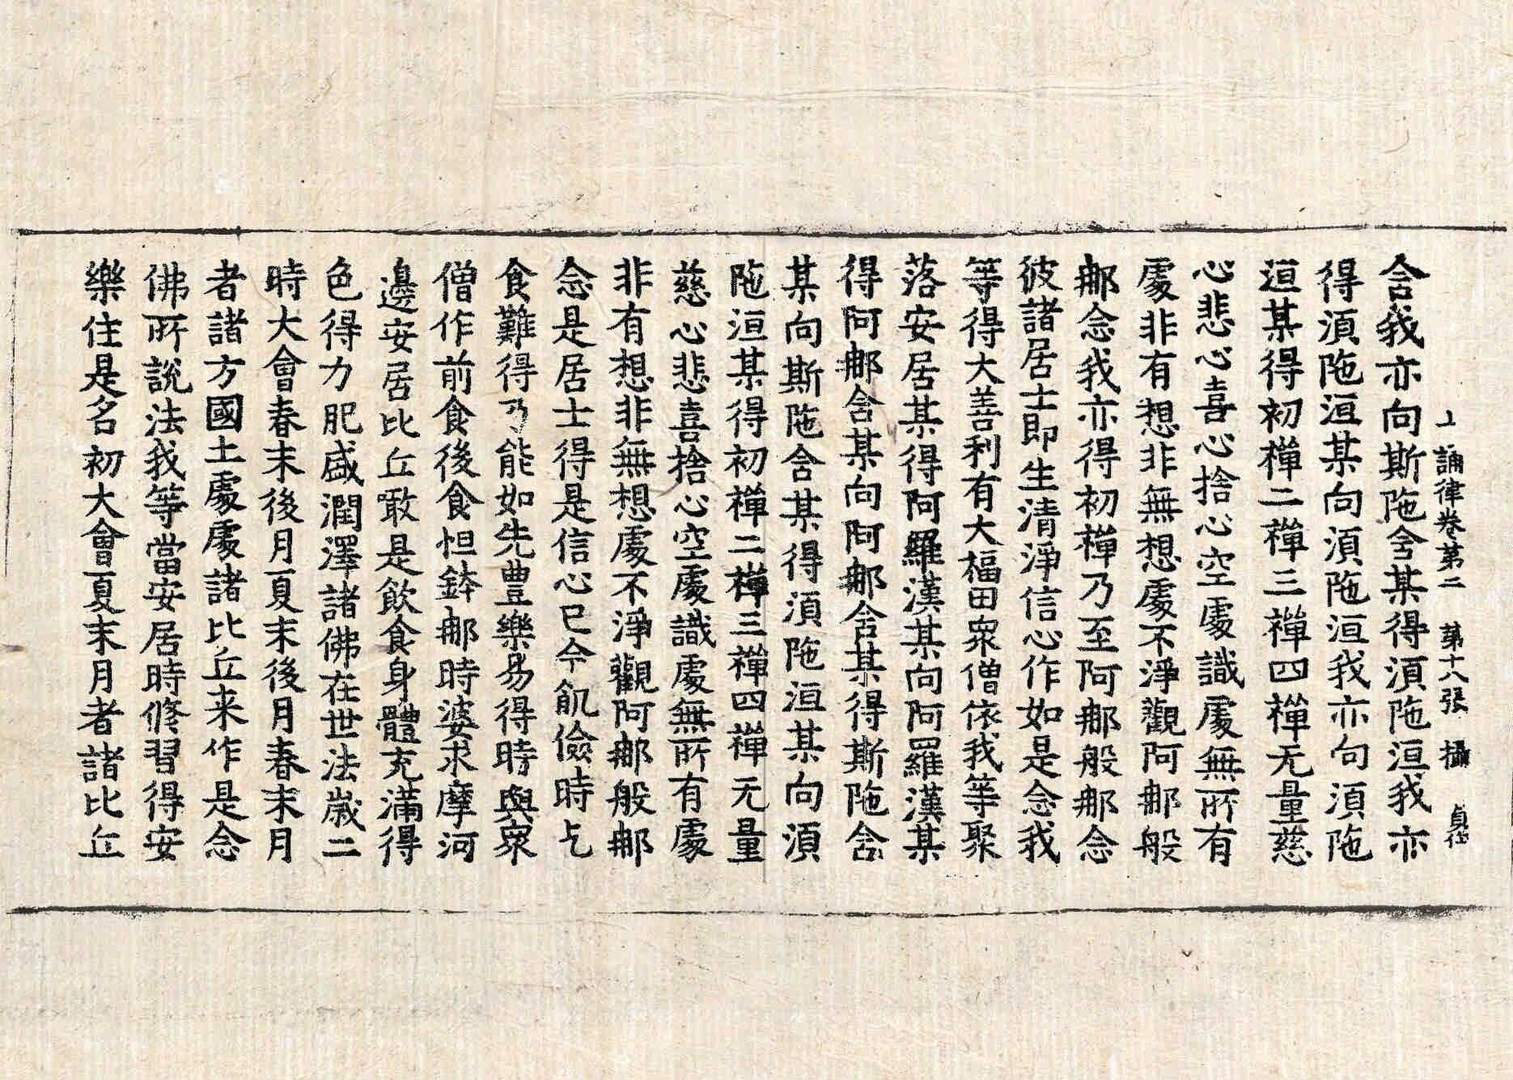 十誦律卷第二 第十八張 攝
含我亦向斯陁含某得湏陁洹我亦
得湏陁洹某向湏陁洹我亦向湏陁
洹某得初禪二禪三禪四禪无量慈
心悲心喜心捨心空處識處無所有
處非有想非無想處不淨觀阿那般
那念我亦得初禪乃至阿那般那念
彼諸居士即生清淨信心作如是念我
等得大善利有大福田衆僧依我等聚
落安居某得阿羅漢某向阿羅漢某
得阿那含某向阿那含某得斯陁含
某向斯陁含某得湏陁洹某向湏
陁洹某得初禪二禪三禪四禪无量
慈心悲喜捨心空處識處無所有處
非有想非無想處不淨觀阿那般那
念是居士得是信心已今飢儉時乞
食難得乃能如先豊樂易得時與衆
僧作前食後食怛鉢那時婆求摩河
邊安居比丘敢是飲食身體充滿得
色得力肥盛潤澤諸佛在世法歲二
時大會春末後月夏末後月春末月
者諸方國土處處諸比丘来作是念
佛所說法我等當安居時修習得安
樂住是名初大會夏末月者諸比丘